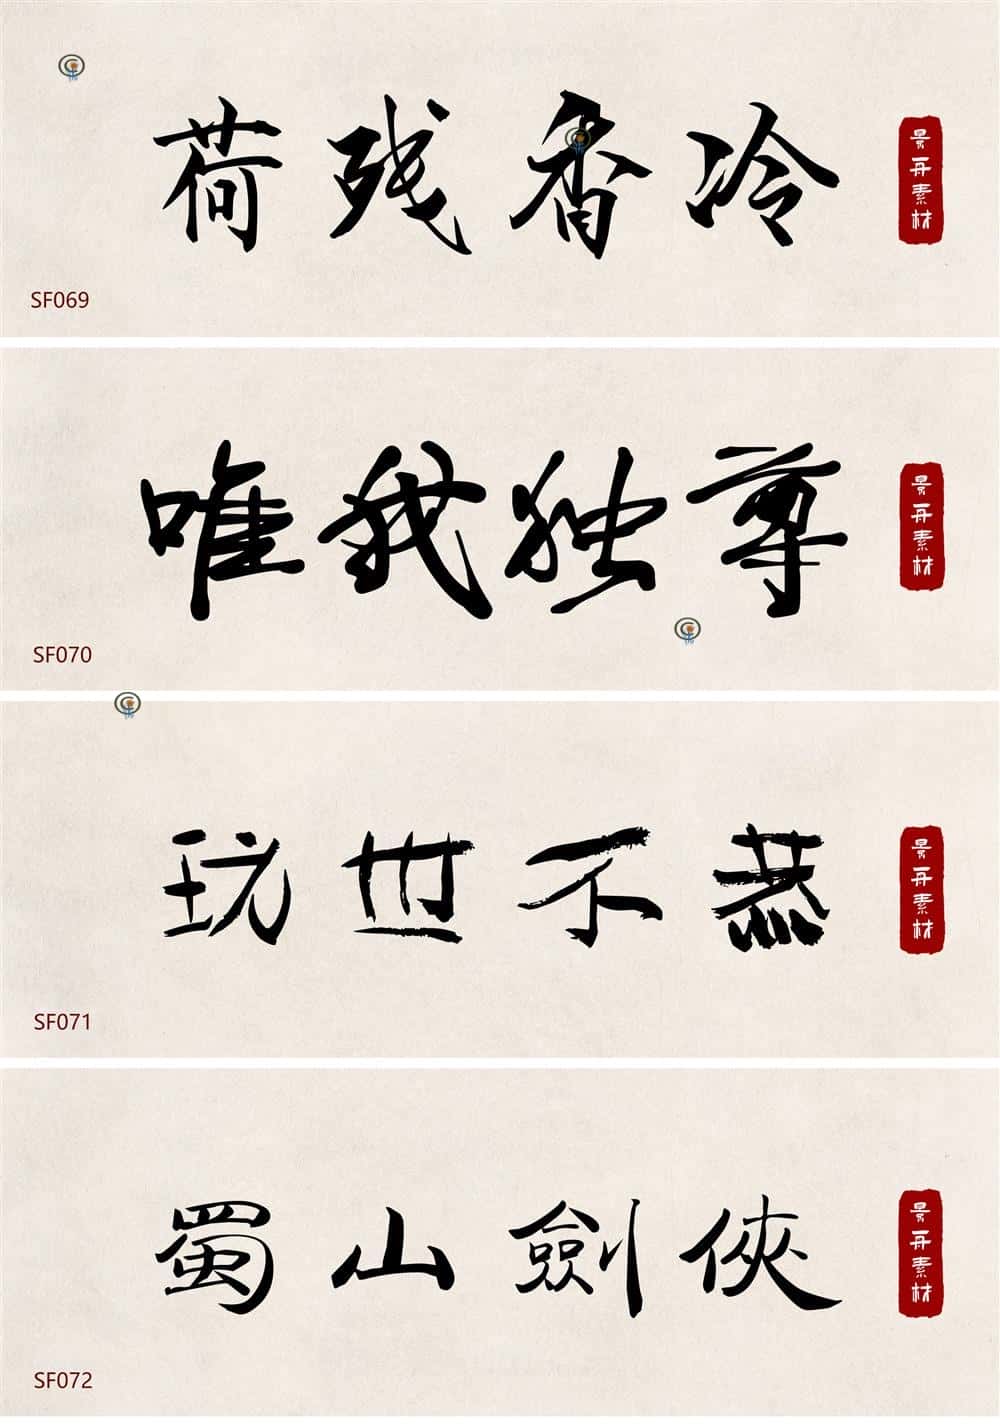 荷残香冷
景舟素材
SF069
唯我独尊
景舟素材
SF070
玩世不恭
景舟素材
SF071
蜀山劍俠
景舟素材
SF072